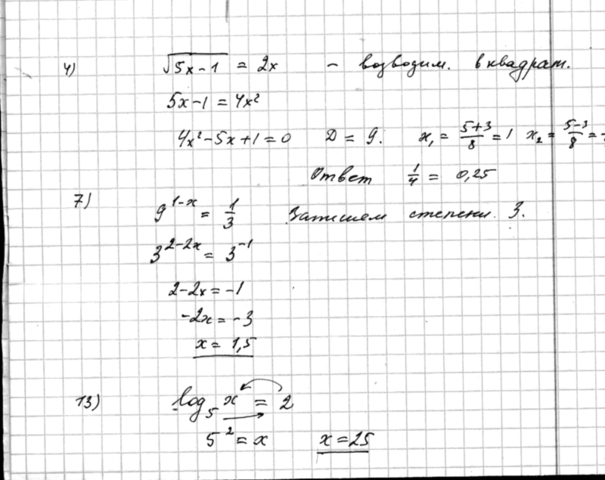 4) √5x-1 = 2x - возводим. в квадрат.
5x-1 = 4x²
4x²-5x+1=0 D = 9. x₁ = (5+3)/8 = 1 x₂ = (5-3)/8 =
Ответ 1/4 = 0,25
7) 9^(1-x) = 1/3 Запишем степени 3.
3^(2-2x) = 3^(-1)
2-2x = -1
-2x = -3
x = 1,5
13) log₅ x = 2
5² = x x = 25